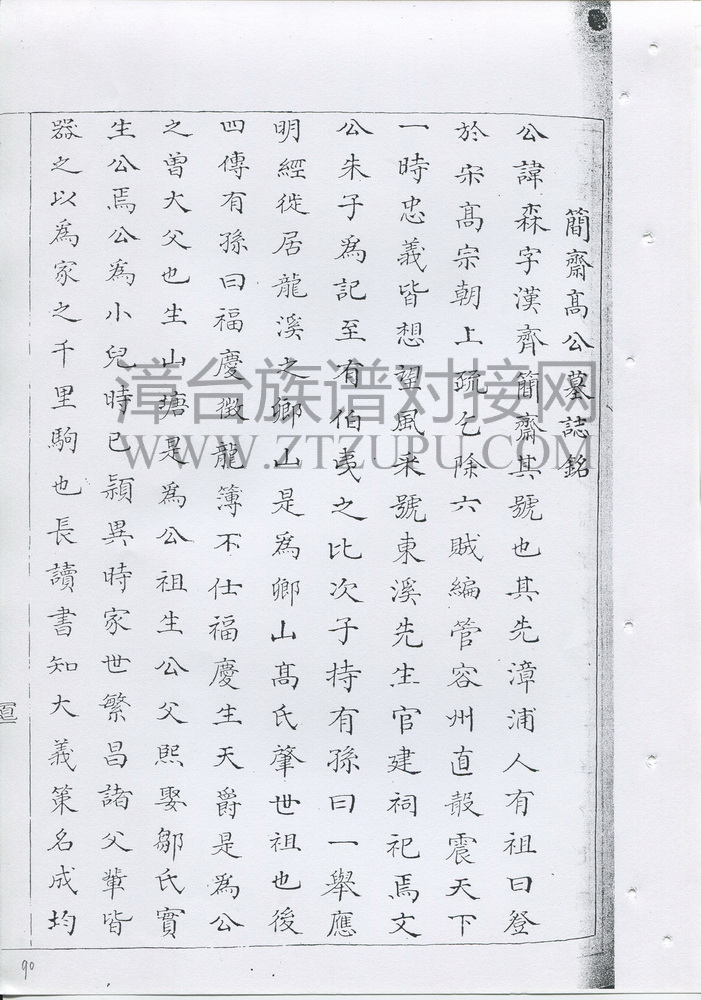 簡齋髙公墓誌銘
公諱森字漢齊簡齋其號也其先漳浦人有祖曰登
於宋髙宗朝上疏乞除六賊編管容州直散震天下
一時忠義皆想望風采號東溪先生官建祠祀焉文
公朱子為記至有伯夷之比次子持有孫曰一舉應
明經徙居龍溪之鄉山是為鄉山髙氏肇世祖也後
四傳有孫曰福慶徴龍簿不仕福慶生天爵是為公
之曽大父也生山塘是為公祖生公父熙娶鄒氏實
生公焉公為小兒時已穎異時家世繁昌諸父輩皆
器之以為家之千里駒也長讀書知大義策名成均
漳台族谱对接网
WWW.ZTZUPU.COM
90